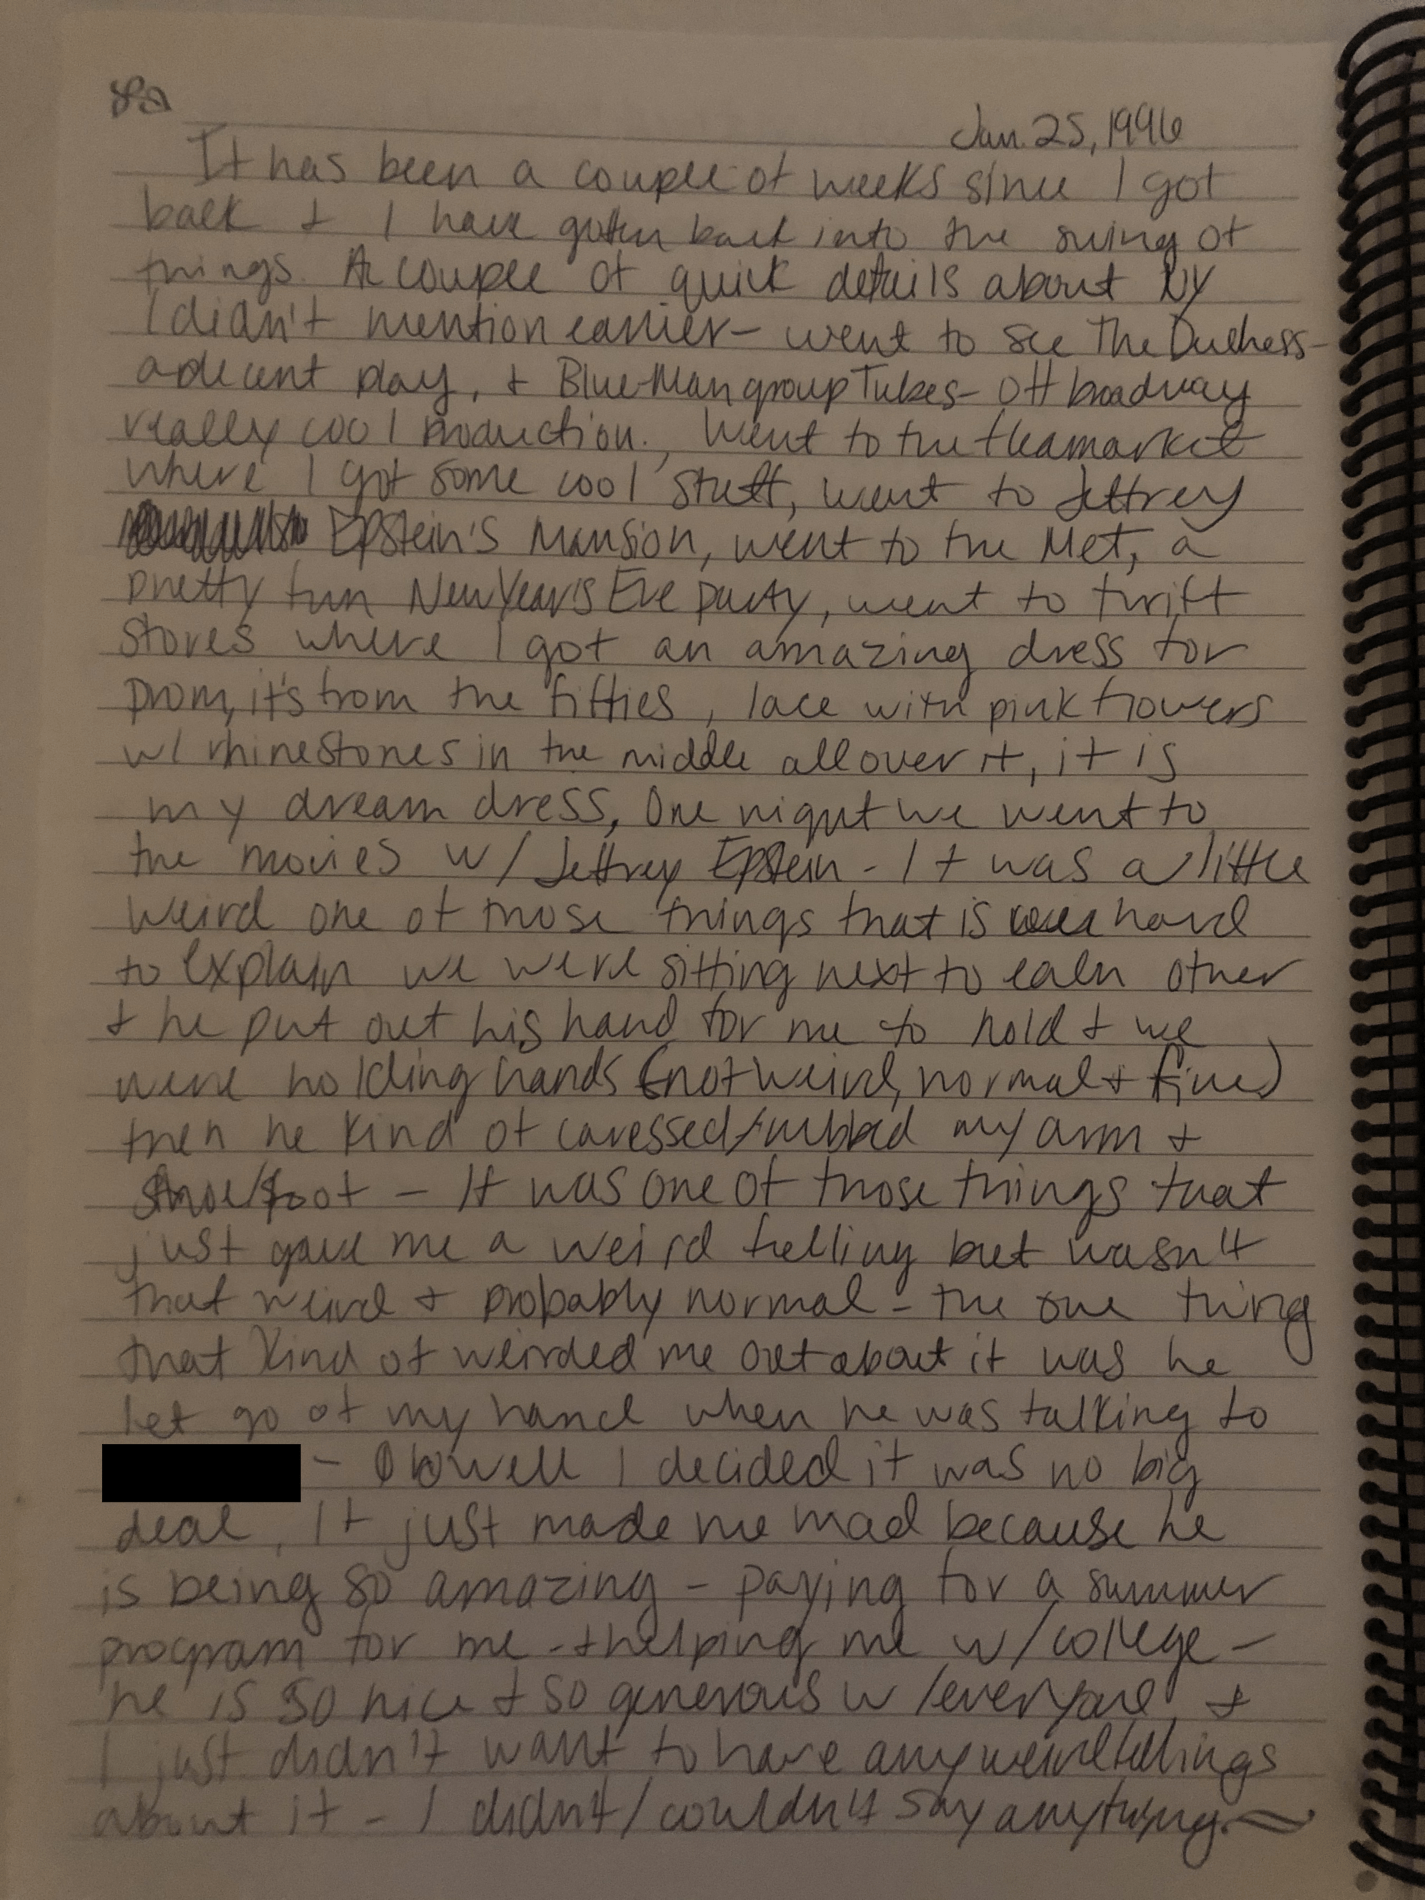 Jan. 25, 1996
It has been a couple of weeks since I got
back + I have gotten back into the swing of
things. A couple of quick details about NY
I didn't mention earlier – went to see The Duchess –
a decent play, + Blue Man group Tubes – off broadway
really cool production., Went to the fleamarket
where I got some cool stuff, went to Jeffrey
Epstein's Mansion, went to the Met, a
pretty fun New Year's Eve party, went to thrift
stores where I got an amazing dress for
prom, it's from the fifties, lace with pink flowers
w/ rhinestones in the middle all over it, it is
my dream dress. One night we went to
the movies w/ Jeffrey Epstein – It was a little
weird one of those things that is hard
to explain we were sitting next to each other
+ he put out his hand for me to hold + we
were holding hands (not weird, normal + fine)
then he kind of caressed/rubbed my arm +
shoe/foot – It was one of those things that
just gave me a weird felling but wasn't
that weird + probably normal – the one thing
that kind of weirded me out about it was he
let go of my hand when he was talking to
– O bowell I decided it was no big
deal, It just made me mad because he
is being so amazing – paying for a summer
program for me – + helping me w/ college –
he is so nice + so generous w/ everyone +
I just didn't want to have any weird fellings
about it – I didn't/couldn't say anything.